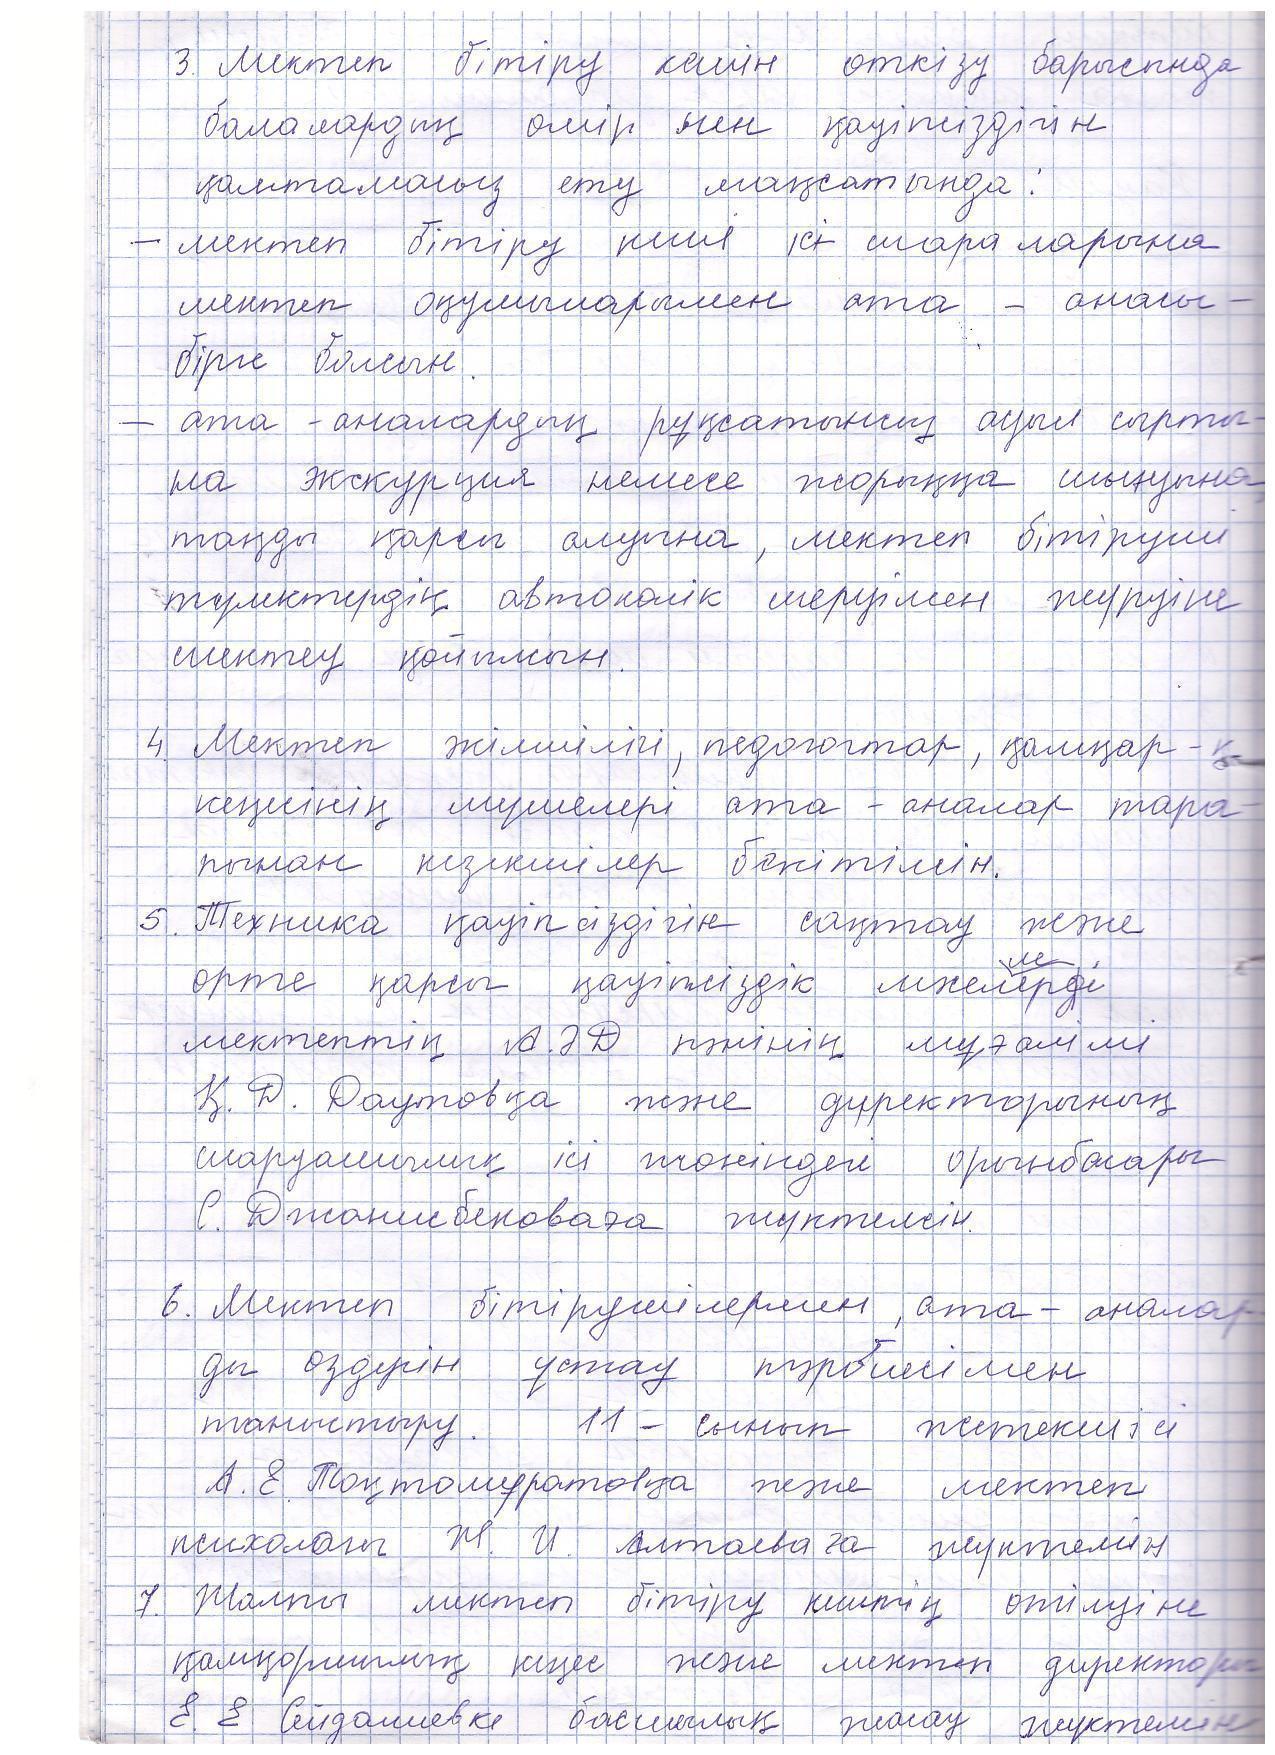 3. Мектеп бітіру кешін откізу барысында
балалардың омір мен қауіпсіздігін
қамтамасыз ету мақсатында:
– мектеп бітіру кеші іс шараларына
мектеп оқушыларымен ата – анасы –
бірге болсын.
– ата – аналардың рұқсатынсыз ауыл сырты-
на экскурция немесе жорыққа шығуына,
таңды қарсы алуына, мектеп бітіруші
түлектердің автокөлік мен жүруіне
шектеу қойылсын.
4. Мектеп әкімшілігі, педогогтар, қамқор-қ
кеңесінің мүшелері ата – аналар тара-
пынан кезекшілер бекітілсін.
5. Техника қауіпсіздігін сақтау және
өртке қарсы қауіпсіздік
мектептің А.ӘД пәнінің мұғалімі
Қ. Д. Даутовқа және директорының
шаруашылық ісі жөніндегі орынбасары
С. Джанисбековаға жүктелсін.
6. Мектеп бітірушілермен, ата – аналар-
ды өздерін ұстау тәрбиесімен
таныстыру. 11 – сынып жетекшісі
А. Е. Тоқтомуратовқа және мектеп
психологы Ж. И. Алтаеваға жүктелсін
7. Жалпы мектеп бітіру кештің өтілуіне
қамқоршылық кеңес және мектеп директоры
Е. Е Сейдалиевке басшылық жасау жүктелсін